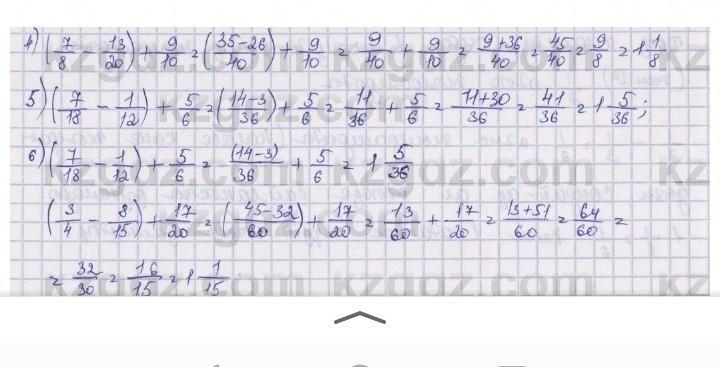 4) (7/8 - 13/20) + 9/10 = (35-26/40) + 9/10 = 9/40 + 9/10 = 9+36/40 = 45/40 = 9/8 = 1 1/8
5) (7/18 - 1/12) + 5/6 = (14-3/36) + 5/6 = 11/36 + 5/6 = 11+30/36 = 41/36 = 1 5/36;
6) (7/18 - 1/12) + 5/6 = (14-3)/36 + 5/6 = 1 5/36
(3/4 - 8/15) + 17/20 = (45-32/60) + 17/20 = 13/60 + 17/20 = 13+51/60 = 64/60 =
= 32/30 = 16/15 = 1 1/15